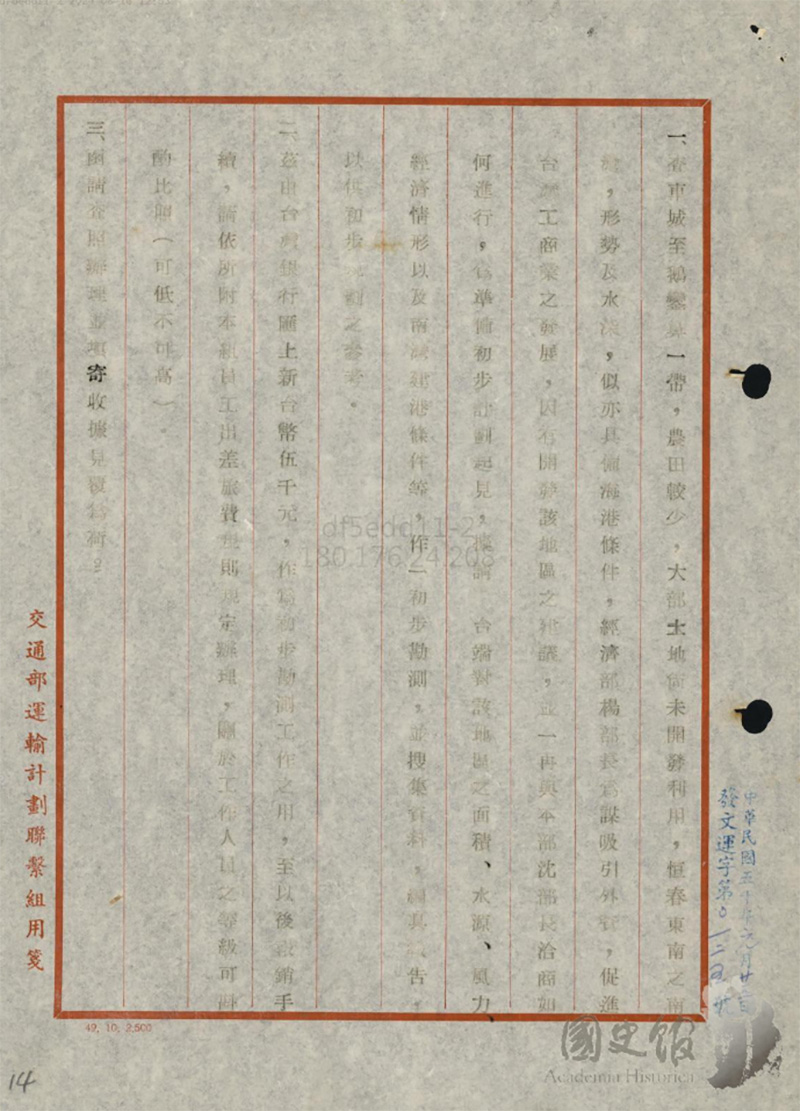 一、查車城至鵝鑾鼻一帶，農田較少，大部土地尚未開發利用，恒春東南之南
灣，形勢及水深，似亦具備海港條件，經濟部楊部長為謀吸引外資，促進
台灣工商業之發展，因有開發該地區之建議，並一再與本部沈部長洽商如
何進行，為準備初步計劃起見，擬請　台端對該地區之面積、水源、風力、
經濟情形以及南灣建港條件等，作一初步勘測，並搜集資料，編具報告，
以供初步計劃之參考。
二、茲由台灣銀行匯上新台幣伍千元，作為初步勘測工作之用，至以後報銷手
續，請依所附本組員工出差旅費規則規定辦理，關於工作人員之等級可
酌比照（可低不可高）。
三、函請查照辦理並填寄收據見覆為荷。
交通部運輸計劃聯繫組用箋
中華民國五十年元月廿
發文運字第
49, 10, 2,500
14
df5edd11-2
180.176.24.208
國史館
Academia Historica